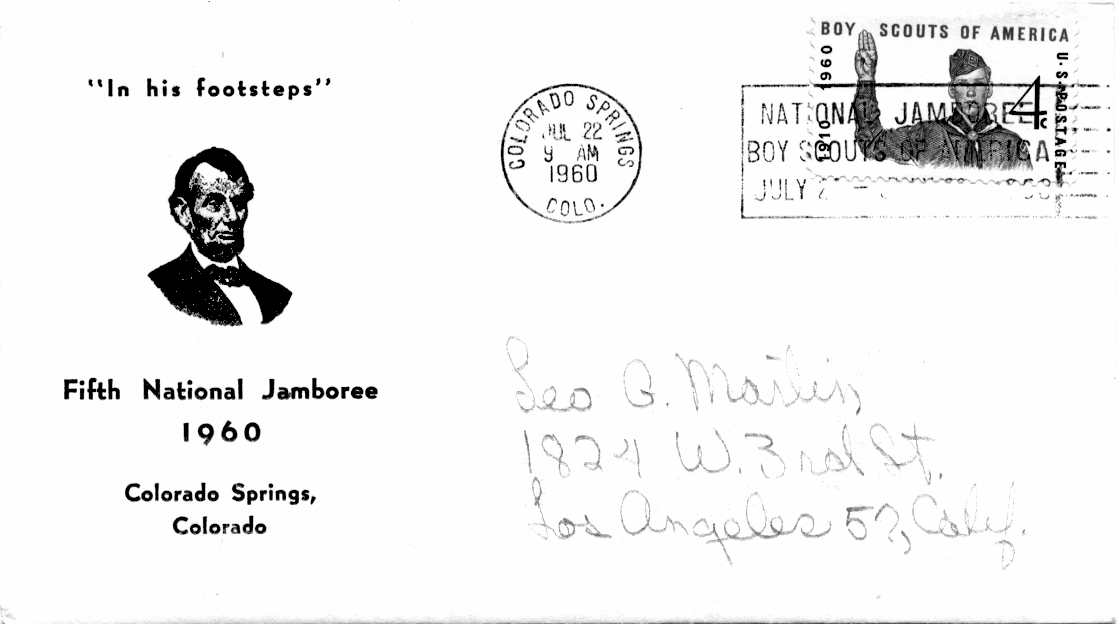 "In his footsteps"
Fifth National Jamboree
1960
Colorado Springs,
Colorado
COLORADO SPRINGS
JUL 22
9 AM
1960
COLO.
BOY SCOUTS OF AMERICA
1910 1960
4c
U.S. POSTAGE
NATIONAL JAMBOREE
BOY SCOUTS OF AMERICA
JULY
Leo G. Martin
1824 W. 3rd St.
Los Angeles 57, Calif.